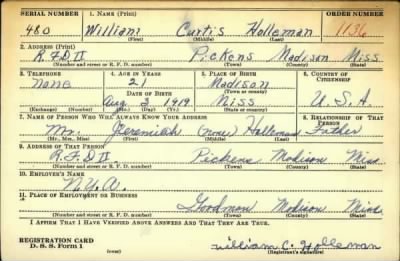 SERIAL NUMBER 1. NAME (Print) ORDER NUMBER
480 William Curtis Holleman 1136
(First) (Middle) (Last)
2. ADDRESS (Print)
R.F.D II Pickens Madison Miss.
(Number and street or R. F. D. number) (Town) (County) (State)
3. TELEPHONE 4. AGE IN YEARS 5. PLACE OF BIRTH 6. COUNTRY OF CITIZENSHIP
None 21 Madison
DATE OF BIRTH (Town or county)
Aug 3 1919 Miss U.S.A.
(Exchange) (Number) (Mo.) (Day) (Yr.) (State or country)
7. NAME OF PERSON WHO WILL ALWAYS KNOW YOUR ADDRESS 8. RELATIONSHIP OF THAT PERSON
Mr. Jeremiah (None) Holleman Father
(Mr., Mrs., Miss) (First) (Middle) (Last)
9. ADDRESS OF THAT PERSON
R.F.D II Pickens Madison Miss.
(Number and street or R. F. D. number) (Town) (County) (State)
10. EMPLOYER'S NAME
N.Y.A.
11. PLACE OF EMPLOYMENT OR BUSINESS
Goodman Madison Miss.
(Number and street or R. F. D. number) (Town) (County) (State)
I AFFIRM THAT I HAVE VERIFIED ABOVE ANSWERS AND THAT THEY ARE TRUE.
REGISTRATION CARD
D. S. S. FORM 1 (over) William C. Holleman
(Registrant's signature)